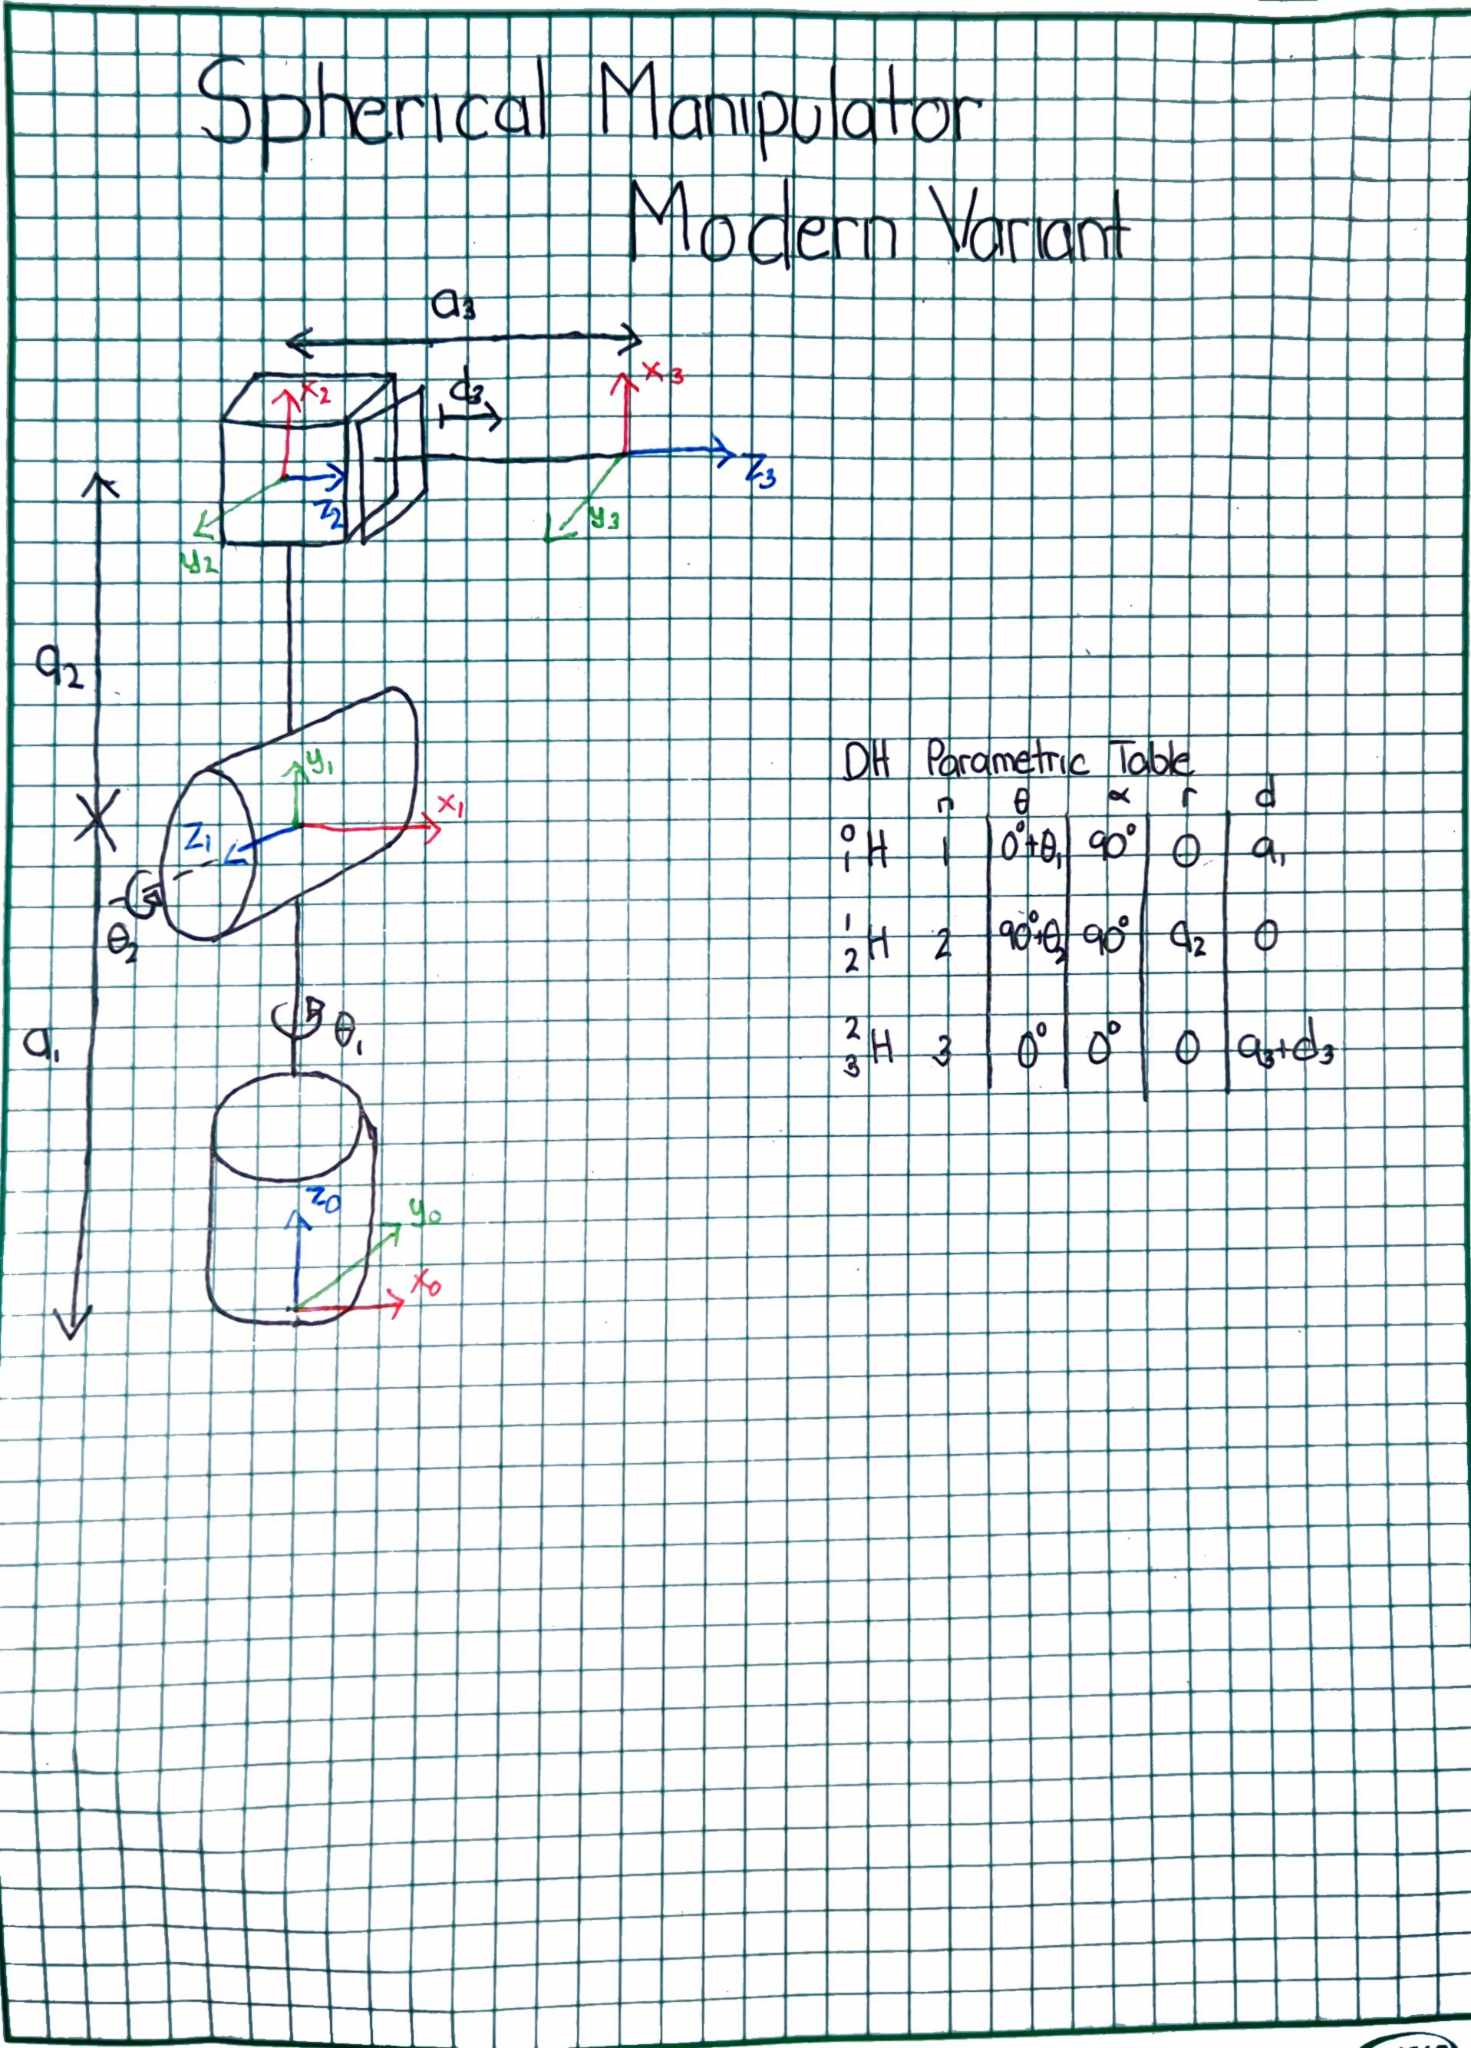 Spherical Manipulator
Modern Variant
a₃
x₂
d₃
x₃
z₂
z₃
y₂
y₃
a₂
y₁
x₁
z₁
θ₂
a₁
θ₁
z₀
y₀
x₀
DH Parametric Table
n θ α r d
⁰₁H 1 0°+θ₁ 90° 0 a₁
¹₂H 2 90°+θ₂ 90° a₂ 0
²₃H 3 0° 0° 0 a₃+d₃